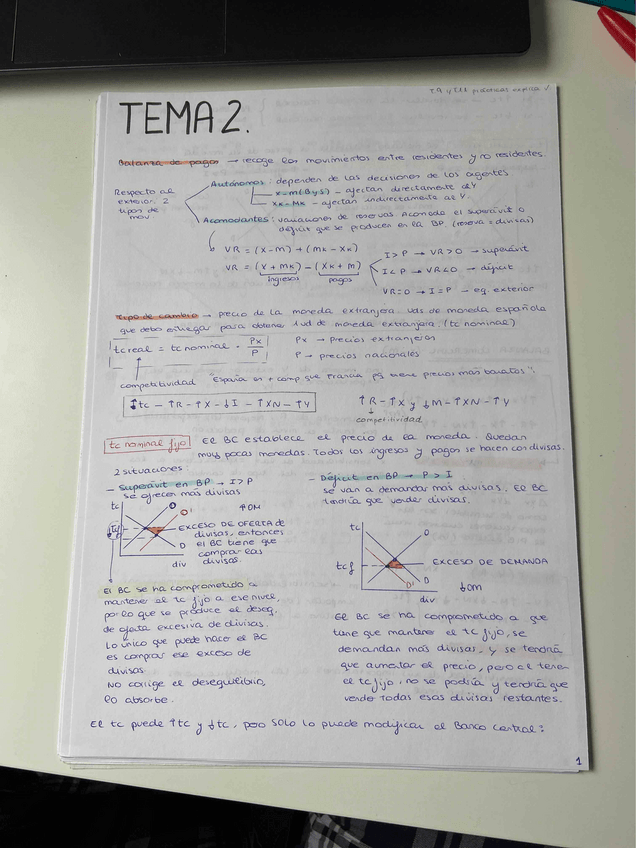 TEMA 2.
Balanza de pagos → recoge los movimientos entre residentes y no residentes.
Respecto al exterior: 2 tipos de mov
Autónomos: dependen de las decisiones de los agentes
X-M (B y S) - afectan directamente al Y
XK-MK - afectan indirectamente al Y.
Acomodantes: variaciones de reservas acomoda el superávit o
déficit que se producen en la BP (reserva = divisas)
VR = (X-M) + (MK - XK)
VR = (X + MK) - (XK + M)
ingresos pagos
I > P → VR > 0 → superávit
I < P → VR < 0 → déficit
VR = 0 → I = P - eq. exterior
Tipo de cambio → precio de la moneda extranjera. uds de moneda española
que debo entregar para obtener 1 ud de moneda extranjera. (tc nominal)
tc real = tc nominal · Px/P
Px → precios extranjeros
P → precios nacionales
competitividad "España es + comp. que Francia pq tiene precios más baratos".
tc - ↑R - ↑X - ↓I - ↑XN - ↑Y
↑R - ↑X y ↓M - ↑XN - ↑Y
competitividad
tc nominal fijo
El BC establece el precio de la moneda. Quedan
muy pocas monedas. Todos los ingresos y pagos se hacen con divisas.
2 situaciones:
- Superávit en BP → I > P
se ofrecen más divisas
tc
O
O'
↑OM
tcf
D
div
EXCESO DE OFERTA de
divisas, entonces
el BC tiene que
comprar las
divisas.
El BC se ha comprometido a
mantener el tc fijo a ese nivel,
por lo que se produce el deseq.
de oferta excesiva de divisas.
Lo único que puede hacer el BC
es comprar ese exceso de
divisas.
No corrige el desequilibrio,
lo absorbe.
- Déficit en BP → P > I
se van a demandar más divisas. El BC
tendría que vender divisas.
tc
O
tcf
EXCESO DE DEMANDA
D
D'
↓OM
div
El BC se ha comprometido a que
tiene que mantener el tc fijo, se
demandan más divisas, y se tendría
que aumentar el precio, pero al tener
el tc fijo, no se podría y tendría que
vender todas esas divisas restantes.
El tc puede ↑tc y ↓tc, pero SOLO lo puede modificar el Banco Central:
1